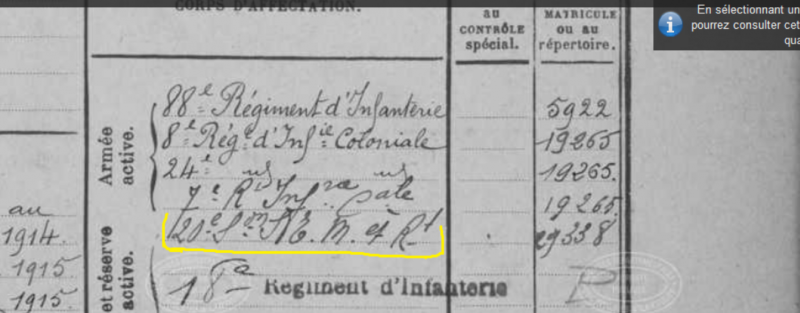 CORPS D'AFFECTATION.
au
CONTRÔLE
spécial.
MATRICULE
ou au
répertoire.
En sélectionnant un
pourrez consulter cet
qua
Armée
active.
88e Régiment d'Infanterie
5922
8e Régt d'Infie Coloniale
19265
24e
19265.
7e Rt Infrie
19265.
20e Son S E. M. et Rt
29338
au
1914.
1915
1915
et réserve
active.
18e Régiment d'Infanterie
P